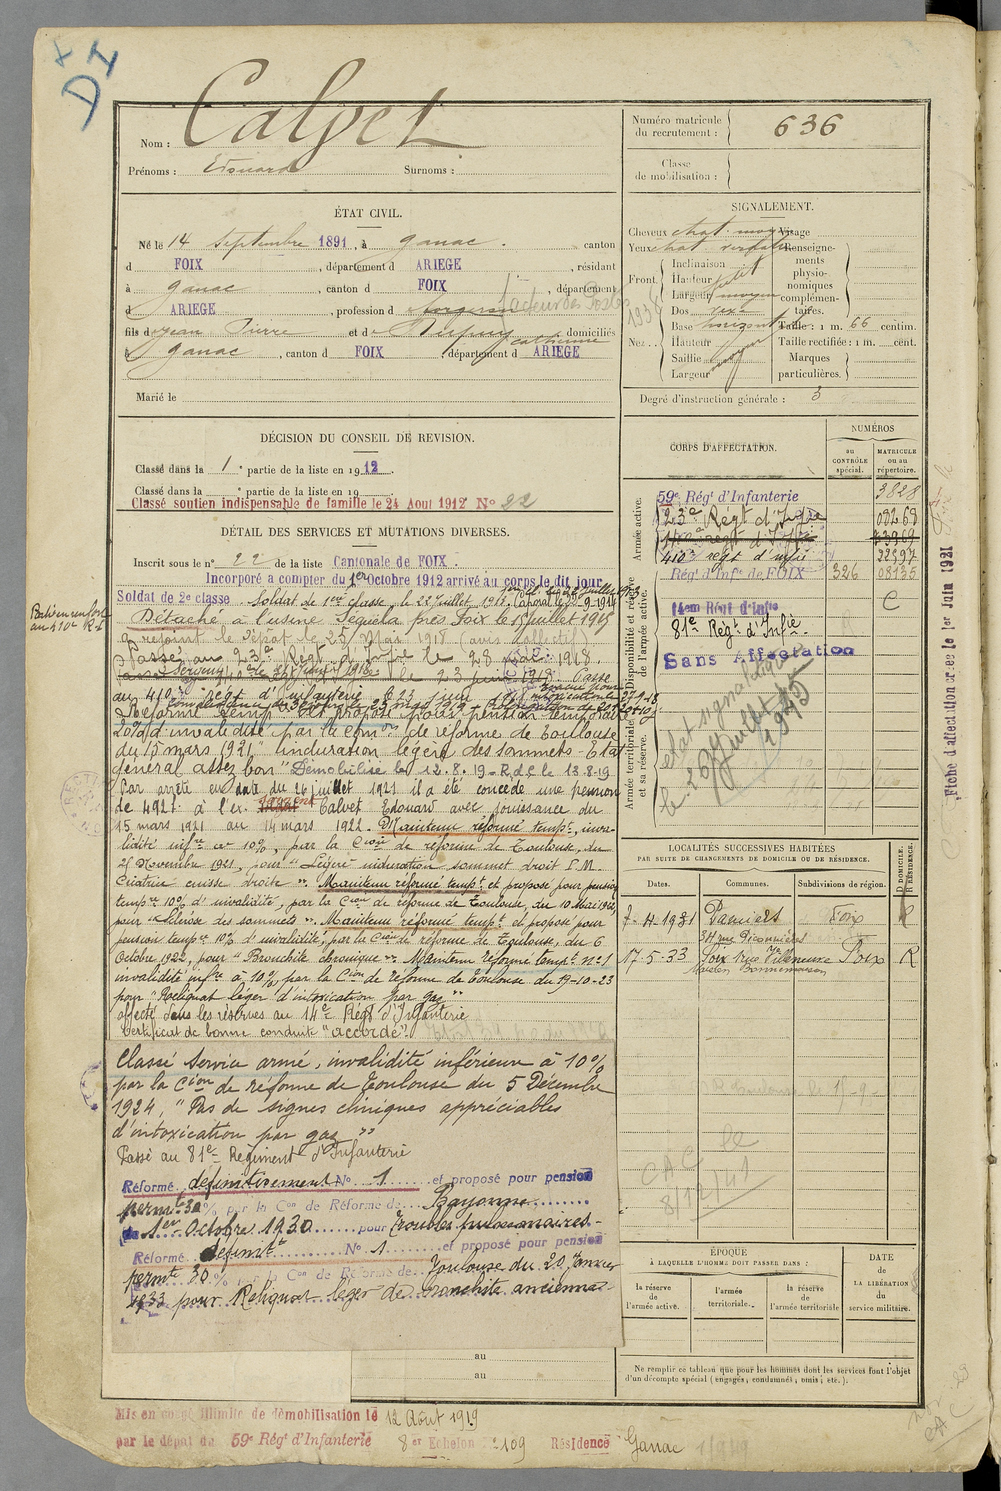 D I
Nom : Calvet
Prénoms : Edouard Surnoms :
Numéro matricule du recrutement : 636
Classe de mobilisation :
ÉTAT CIVIL.
Né le 14 Septembre 1891, à Ganac. canton
d FOIX, département d ARIEGE, résidant
à Ganac, canton d FOIX, département
d ARIEGE, profession d forgeron facteur des Postes
fils de Jean Pierre et de domiciliés
Catherine
à Ganac, canton d FOIX département d ARIEGE
Marié le
SIGNALEMENT.
Cheveux chat. moyen Visage
Yeux chat
Front. Inclinaison
Hauteur petit
Largeur moyen
Nez. Dos rect.
Base horizont.
Hauteur
Saillie moyen
Largeur
Renseignements physionomiques complémentaires.
Taille : 1 m. 66 centim.
Taille rectifiée : 1 m. cent.
Marques particulières.
Degré d'instruction générale : 3
DÉCISION DU CONSEIL DE REVISION.
Classé dans la 1e partie de la liste en 1912.
Classé dans la e partie de la liste en 19
Classé soutien indispensable de famille le 24 Aout 1912 No 22
DÉTAIL DES SERVICES ET MUTATIONS DIVERSES.
Inscrit sous le n° 22 de la liste Cantonale de FOIX.
Incorporé a compter du 1er Octobre 1912 arrivé au corps le dit jour
Soldat de 2e classe Soldat de 1ere classe, le 22 Juillet 1913. Caporal le
Détaché à l'usine près Foix le 15 juillet 1915
a rejoint le dépôt le 25 Mai 1918 (avis collectif)
Passé au 23e Régt d'Infie le 28 1918.
le 23 juin 1918 Passé
au 410e régt d'Infanterie le 23 juin
Réformé temp. et proposé pour pension temporaire
20% d'invalidité par la comon de réforme de Toulouse
du 15 mars 1921 "induration légère des sommets - Etat
général assez bon" Démobilisé le 12.8.19 - R.d.C le 13.8.19
Par arrêté en date du 26 juillet 1921 il a été concédé une pension
de 492f à l'ex Calvet Edouard avec jouissance du
15 mars 1921 au 14 mars 1922. Maintenu réformé tempre, inva-
lidité infre à 10%, par la Cion de réforme de Toulouse, du
25 Novembre 1921, pour "Légère induration sommet droit P.M.
Cicatrice cuisse droite". Maintenu réformé tempt et proposé pour pension
tempre 10% d'invalidité, par la Cion de réforme de Toulouse, du 10 Mai 1922,
pour "Sclérose des sommets". Maintenu réformé tempt et proposé pour
pension tempre 10% d'invalidité, par la Cion de réforme de Toulouse, du 6
Octobre 1922, pour "Bronchite chronique". Maintenu réformé tempt n°1
invalidité infre à 10% par la Cion de réforme de Toulouse du 19-10-23
pour "Reliquat léger d'intoxication par gaz"
affecté dans les réserves au 14e Régt d'Infanterie
Certificat de bonne conduite "accordé".
Classé Service armé, invalidité inférieure à 10%
par la Cion de réforme de Toulouse du 5 Décembre
1924, "Pas de signes cliniques appréciables
d'intoxication par gaz"
Passé au 81e Régiment d'Infanterie
Réformé définitivement No 1 et proposé pour pension
permte 30% par la Con de Réforme de Bayonne
du 1er Octobre 1930 pour Troubles pulmonaires.-
Réformé définitt No 1 et proposé pour pension
permte 30% par la Con de Réforme de Toulouse du 20 Janvier
1933 pour Reliquat léger de Bronchite ancienne.
CORPS D'AFFECTATION.
NUMÉROS
au CONTRÔLE spécial.
MATRICULE ou au répertoire.
Armée active.
59e Régt d'Infanterie 3828
23e Régt d'Infie 08268
410e régt d'infie 32597
Disponibilité et réserve de l'armée active.
Régt d'Infie de FOIX 326 08135
14em Régt d'Infie C
81e Régt d'Infie
Sans Affectation
Armée territoriale et sa réserve.
état signalétique
le 25 Juillet 1945
Fiche d'affectation créée le 1er Juin 1921
LOCALITÉS SUCCESSIVES HABITÉES
PAR SUITE DE CHANGEMENTS DE DOMICILE OU DE RÉSIDENCE.
Dates. Communes. Subdivisions de région. D DOMICILE. R RÉSIDENCE.
7-4-1931 Pamiers Foix R
17-5-33 Foix rue Villeneuve Foix R
Maison Bonnemaison
CAC le
8/12/41
ÉPOQUE
À LAQUELLE L'HOMME DOIT PASSER DANS :
la réserve de l'armée active.
l'armée territoriale.
la réserve de l'armée territoriale
DATE de LA LIBÉRATION du service militaire.
au
au
Ne remplir ce tableau que pour les hommes dont les services font l'objet
d'un décompte spécial (engagés, condamnés, omis, etc.).
Mis en congé illimité de démobilisation le 12 Août 1919
par le dépôt du 59e Régt d'Infanterie 8er Echelon 109 Résidence Ganac